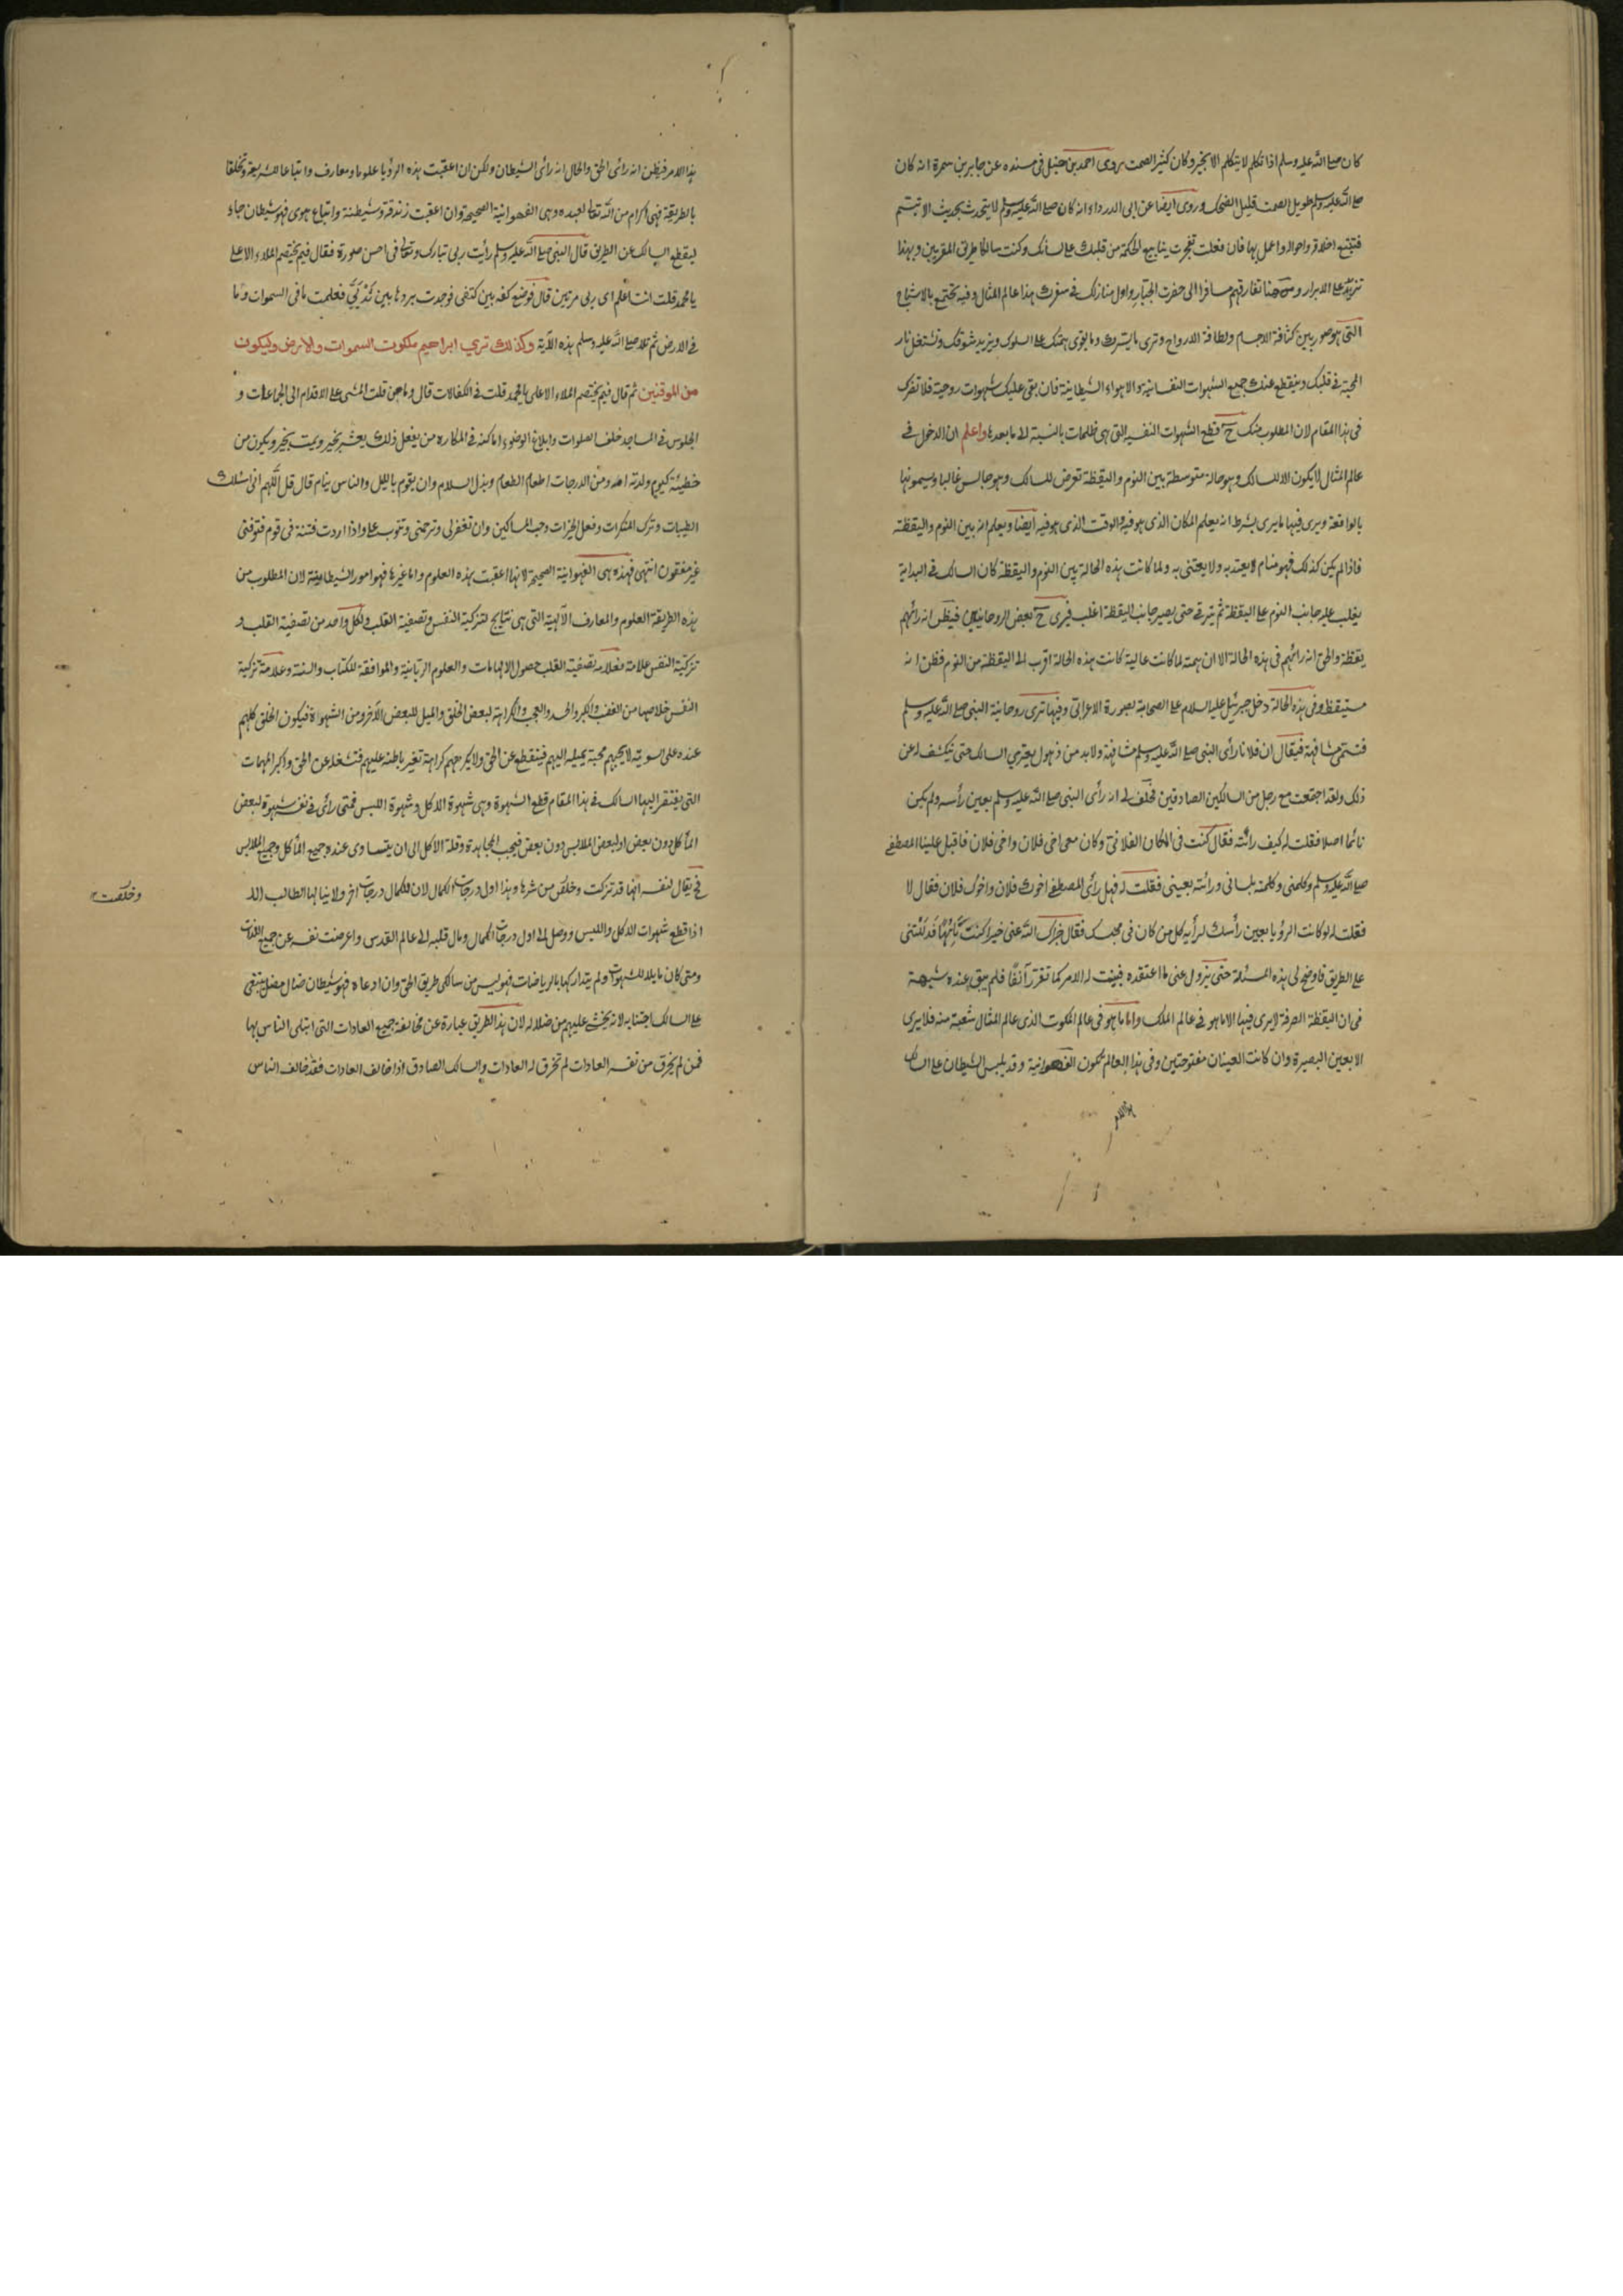 كان صلى الله عليه وسلم اذا تكلم لا يتكلم الا بخير وكان كثير الصمت روى احمد بن حنبل فى مسنده عن جابر بن سمرة انه كان
صلى الله عليه وسلم طويل الصمت قليل الضحك وروى ايضا عن ابى الدرداء انه كان صلى الله عليه وسلم لا يتحدث بحديث الا تبسم
فتتبع اخلاقه واحواله واعمل بها فان فعلت تفجرت ينابيع الحكمة من قلبك على لسانك وكنت سالكا طريق المقربين وبهذا
تزيد على الابرار ومن هنا تفارقهم مسافرا الى حضرت الجبار واول منازلك فى سفرك هذا عالم المثال وفيه تجتمع بالاشباح
التى هو صور بين كثافة الاجسام ولطافة الارواح وترى ما يسرك وما يقوى همتك على السلوك ويزيد شوقك وتشتعل نار
المحبة فى قلبك وينقطع عنك جميع الشهوات النفسانية والاهواء الشيطانية فان بقى عليك شهوات روحية فلا تضرك
فى هذا المقام لان المطلوب منك ح قطع الشهوات النفسية التى هى ظلمات بالنسبة الى ما بعدها واعلم ان الدخول فى
عالم المثال لا يكون الا للسالك وهو حالة متوسطة بين النوم واليقظة تعرض للسالك وهو جالس غالبا ويسمونها
بالواقعة ويرى فيها ما يرى بشرط انه يعلم المكان الذى هو فيه والوقت الذى هو فيه ايضا ويعلم انه بين النوم واليقظة
فاذا لم يكن كذلك فهو منام لا يعتد به ولا يعتنى به ولما كانت هذه الحالة بين النوم واليقظة كان السالك فى البداية
يغلب عليه جانب النوم على اليقظة ثم يترقى حتى يصير جانب اليقظة اغلب فيرى ح بعض الروحانيين فيظن انه رائهم
يقظة والحق انه رائهم فى هذه الحالة الا ان همته لما كانت عالية كانت هذه الحالة اقرب الى اليقظة من النوم فظن انه
مستيقظ وفى هذه الحالة دخل جبرئيل عليه السلام على الصحابة بصورة الاعرابى وفيها ترى روحانية النبى صلى الله عليه وسلم
فتسمى مشافهة فيقال ان فلانا رأى النبى صلى الله عليه وسلم مشافهة ولا بد من ذهول يعترى السالك حتى ينكشف له عن
ذلك ولقد اجتمعت مع رجل من السالكين الصادقين فحلف لى انه رأى النبى صلى الله عليه وسلم بعين رأسه ولم يكن
نائما اصلا فقلت له كيف رائته فقال كنت فى المكان الفلانى وكان معى اخى فلان واخى فلان فاقبل علينا المصطفى
صلى الله عليه وسلم وكلمنى وكلمته بلسانى ورائته بعينى فقلت له فهل رأى المصطفى اخوك فلان واخوك فلان فقال لا
فقلت له لو كانت الرؤيا بعين رأسك لرأيه كل من كان فى مجلسك فقال جزاك الله عنى خيرا كنت تائها قد دللتنى
على الطريق فاوضح لى هذه المسئلة حتى يزول عنى ما اعتقده فبينت له الامر كما تقرر آنفا فلم يبق عنده شبهة
فى ان اليقظة الصرفة لا يرى فيها الا ما هو فى عالم الملك واما ما هو فى عالم الملكوت الذى عالم المثال شعبة منه فلا يرى
الا بعين البصيرة وان كانت العينان مفتوحتين وفى هذا العالم تكون الفهوانية وقد يلبس الشيطان على السالك
هذا الامر فيظن انه رائى الحق والحال انه رائى الشيطان ولكن ان اعقبت هذه الرؤيا علوما ومعارف واتباعا للشريعة وتخلقا
بالطريقة فهى اكرام من الله تعالى لعبده وهى الفهوانية الصحيحة وان اعقبت زندقة وشيطنة واتباع هوى فهو شيطان جاء
ليقطع السالك عن الطريق قال النبى صلى الله عليه وسلم رأيت ربى تبارك وتعالى فى احسن صورة فقال فيم يختصم الملاء الاعلى
يا محمد قلت انت اعلم اى ربى مرتين قال فوضع كفه بين كتفى فوجدت بردها بين ثديى فعلمت ما فى السموات وما
فى الارض ثم تلا صلى الله عليه وسلم هذه الآية وكذلك نري ابراهيم ملكوت السموات والارض وليكون
من الموقنين ثم قال فيم يختصم الملاء الاعلى يا محمد قلت فى الكفالات قال وما هن قلت المشى على الاقدام الى الجماعات و
الجلوس فى المساجد خلف الصلوات وابلاغ الوضوء اماكنه فى المكاره من يفعل ذلك يعش بخير ويمت بخير ويكون من
خطيئته كيوم ولدته امه ومن الدرجات اطعام الطعام وبذل السلام وان يقوم بالليل والناس ينام قال قل اللهم انى اسئلك
الطيبات وترك المنكرات وفعل الخيرات وحب المساكين وان تغفر لى وترحمنى وتتوب على واذا اردت فتنة فى قوم فتوفنى
غير مفتون انتهى فهذه هى الفهوانية الصحيحة لانها اعقبت بهذه العلوم واما غيرها فهو امور الشيطانية لان المطلوب من
هذه الطريقة العلوم والمعارف الالهية التى هى نتايج لتزكية النفس وتصفية القلب ولكل واحد من تصفية القلب و
تزكية النفس علامة فعلامة تصفية القلب حصول الالهامات والعلوم الربانية والموافقة للكتاب والسنة وعلامة تزكية
النفس خلاصها من الغضب والكبر والحسد والعجب والكراهة لبعض الخلق والميل للبعض الاخر ومن الشهوة فيكون الخلق كلهم
عنده على السوية لا يحبهم محبة يميله اليهم فينقطع عن الحق ولا يكرههم كراهة تغير باطنه عليهم فتشغله عن الحق واكبر المهمات
التى يفتقر اليها السالك فى هذا المقام قطع الشهوة وهى شهوة الاكل وشهوة اللبس فمتى رائى فى نفسه شهوة لبعض
المأكل دون بعض او لبعض الملابس دون بعض فيجب المجاهدة وقلة الاكل الى ان يتساوى عنده جميع المأكل وجميع الملابس
فح يقال لنفسه انها قد تزكت وخلقت من شرها وهذا اول درجات الكمال لان للكمال درجات اخر ولا ينالها الطالب الا
وخلصت
اذا قطع شهوات الاكل واللبس ووصل الى اول درجات الكمال ومال قلبه الى عالم القدس واعرضت نفسه عن جميع اللذات
ومتى كان مايلا للشهوات ولم يتداركها بالرياضات فهو ليس من سالكى طريق الحق وان ادعاه فهو شيطان ضال مضل ينبغى
على السالك اجتنابه لانه يخشى عليهم من ضلاله لان هذا الطريق عبارة عن مخالفة جميع العادات التى ابتلى الناس بها
فمن لم يخرق من نفسه العادات لم تخرق له العادات والسالك الصادق اذا خالف العادات فقد خالف الناس